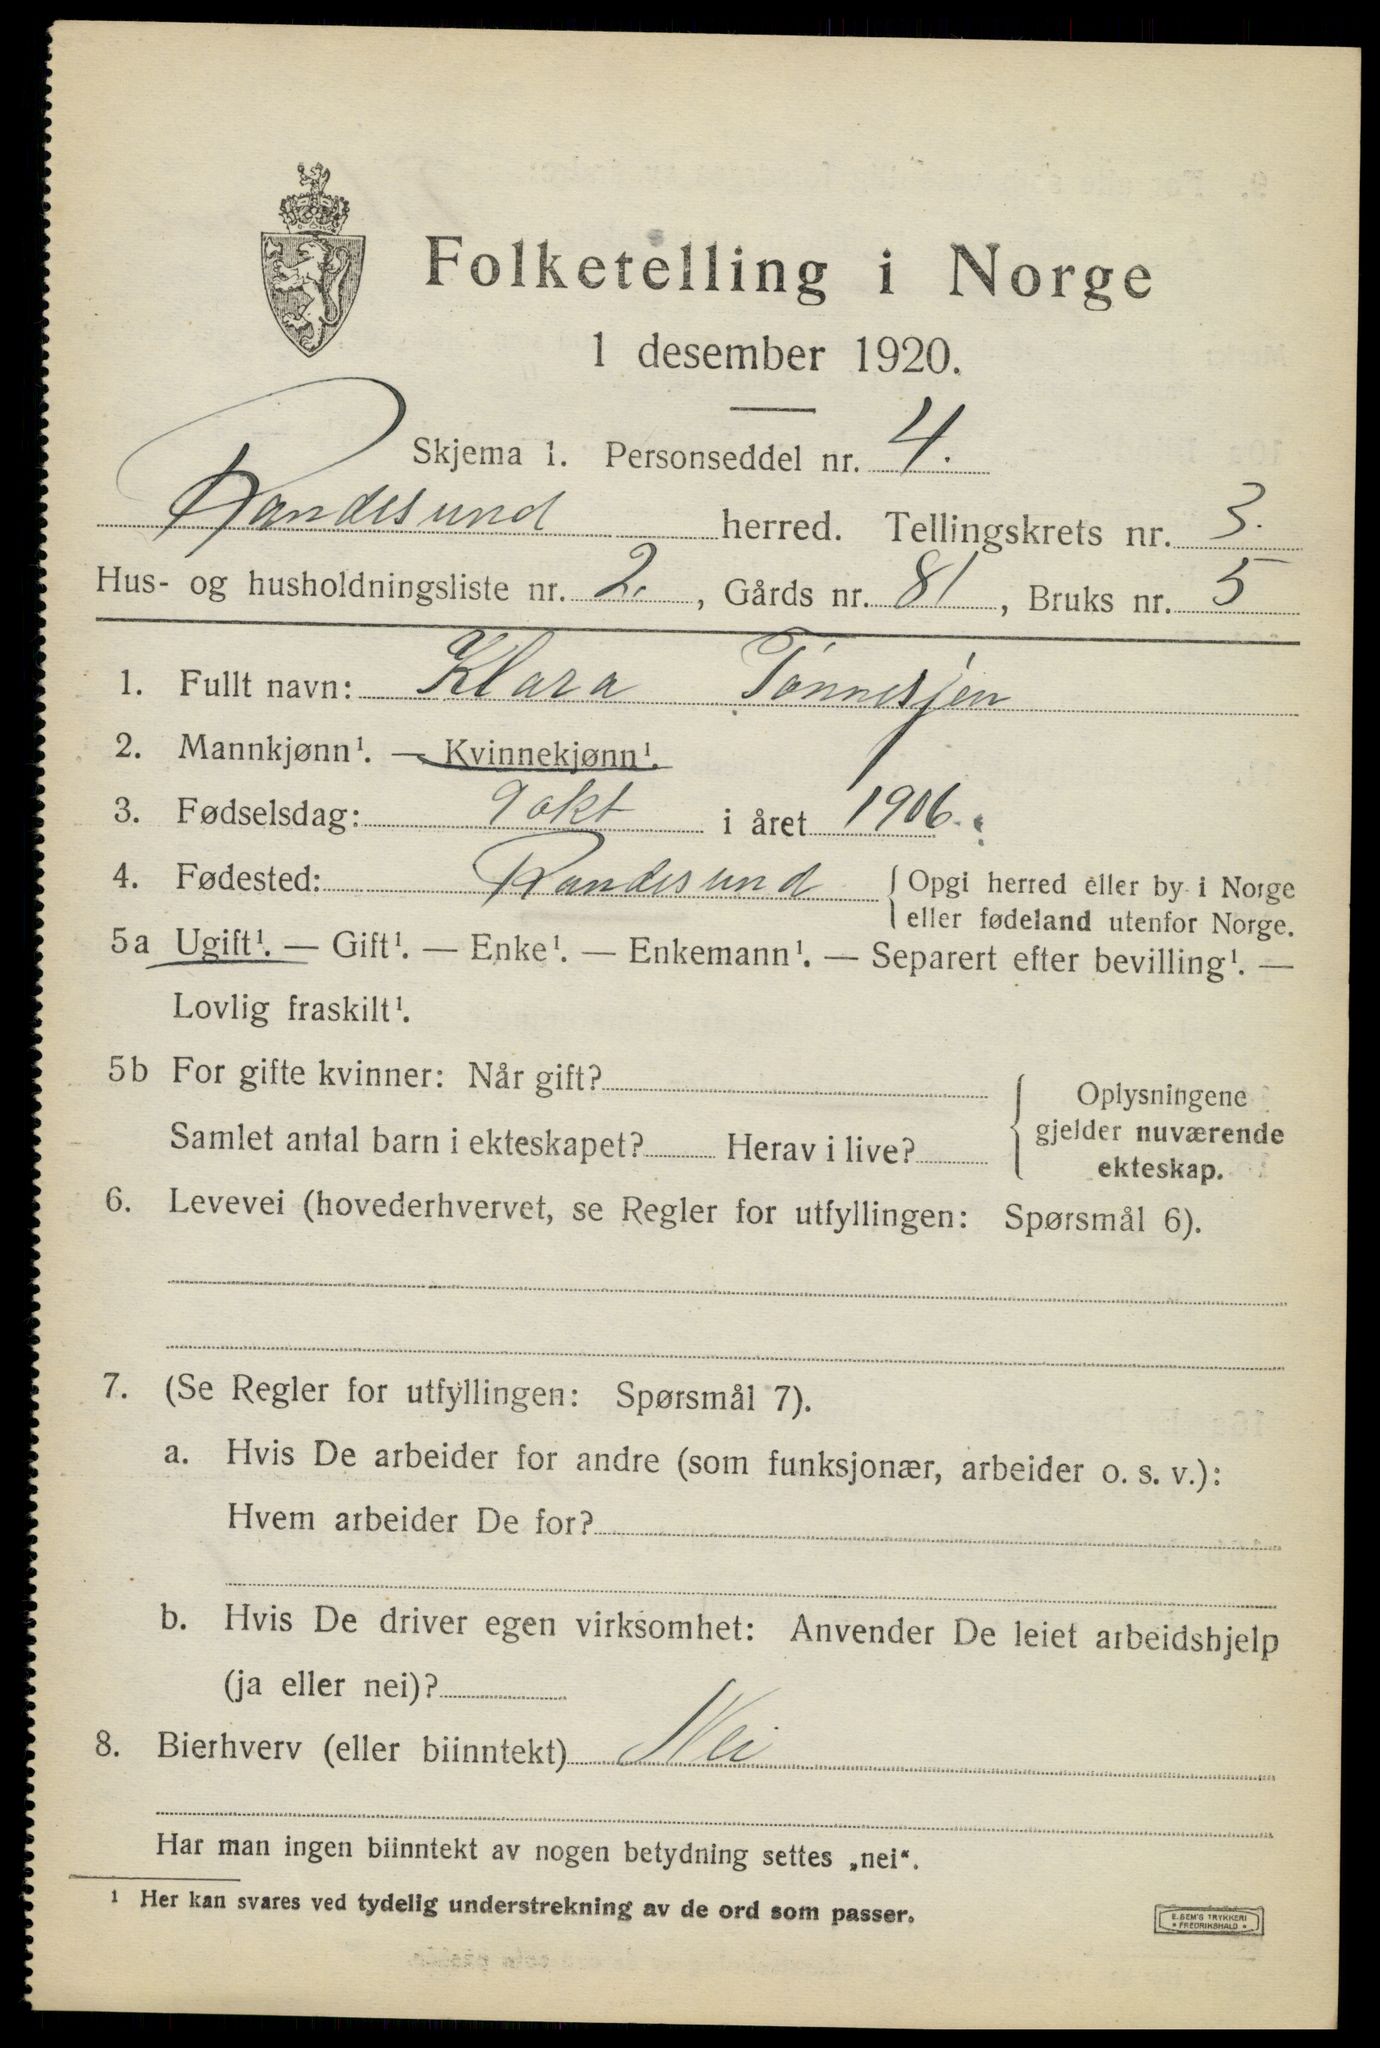 Folketelling i Norge
1 desember 1920.
Skjema 1. Personseddel nr. 4.
Randesund herred. Tellingskrets nr. 3.
Hus- og husholdningsliste nr. 2. , Gårds nr. 81 , Bruks nr. 5
1. Fullt navn: Klara Tønnesjen
2. Mannkjønn¹. — Kvinnekjønn¹.
3. Fødselsdag: 9 okt i året 1906.
4. Fødested: Randesund { Opgi herred eller by i Norge
eller fødeland utenfor Norge.
5a Ugift¹. — Gift¹. — Enke¹. — Enkemann¹. — Separert efter bevilling¹. —
Lovlig fraskilt¹.
5b For gifte kvinner: Når gift?
Samlet antal barn i ekteskapet? Herav i live?
Oplysningene
gjelder nuværende
ekteskap.
6. Levevei (hovederhvervet, se Regler for utfyllingen: Spørsmål 6).
7. (Se Regler for utfyllingen: Spørsmål 7).
a. Hvis De arbeider for andre (som funksjonær, arbeider o. s. v.):
Hvem arbeider De for?
b. Hvis De driver egen virksomhet: Anvender De leiet arbeidshjelp
(ja eller nei)?
8. Bierhverv (eller biinntekt) Nei
Har man ingen biinntekt av nogen betydning settes „nei“.
¹ Her kan svares ved tydelig understrekning av de ord som passer.
E. SEM'S TRYKKERI
• FREDRIKSHALD •